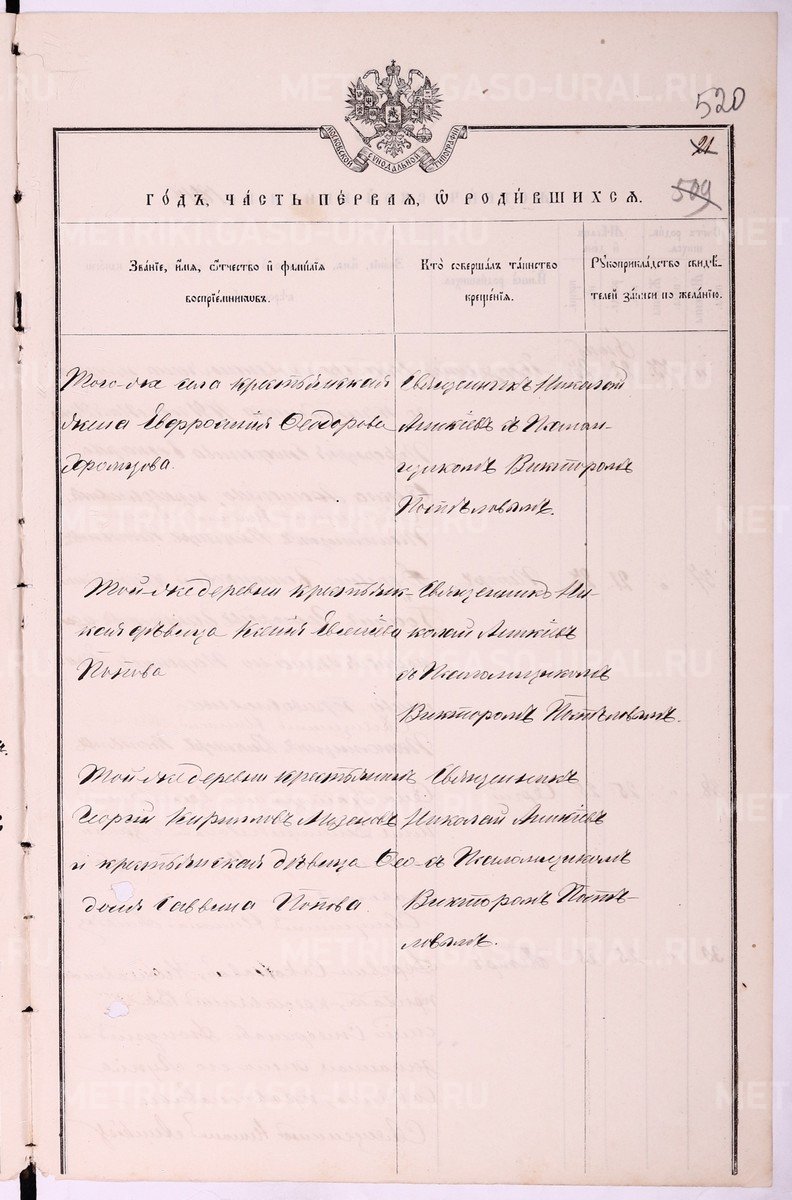 520
МОСКОВСКОЙ СѴНОДАЛЬНОЙ ТИПОГРАФІИ
21
509
ГО́ДЪ, ЧА́СТЬ ПЕ́РВАЯ, Ѡ РОДИ́ВШИХСЯ.
Зва́нїе, и́мя, ѻ́тчество и҆ фами́лїя
воспрїе́мниковъ.
Кто̀ соверша́лъ та́инство
креще́нїя.
Рꙋкоприкла́дство свидѣ́-
телей за́писи по жела́нїю.
Того-же села крестьянская
жена Евфросинія Ѳеодорова
Священникъ Николай
съ Псалом-
щикомъ Викторомъ
Поспѣловымъ.
Той-же деревни крестьянс-
кая дѣвица Ксенія
Попова
Священникъ Ни-
колай
съ Псаломщикомъ
Викторомъ Поспѣловымъ.
Той-же деревни крестьянинъ
Георгій Кирилловъ
и крестьянская дѣвица Ѳео-
досія Саввина Попова.
Священникъ
Николай
съ Псаломщикомъ
Викторомъ Поспѣ-
ловымъ.
METRIKI.GASO-URAL.RU